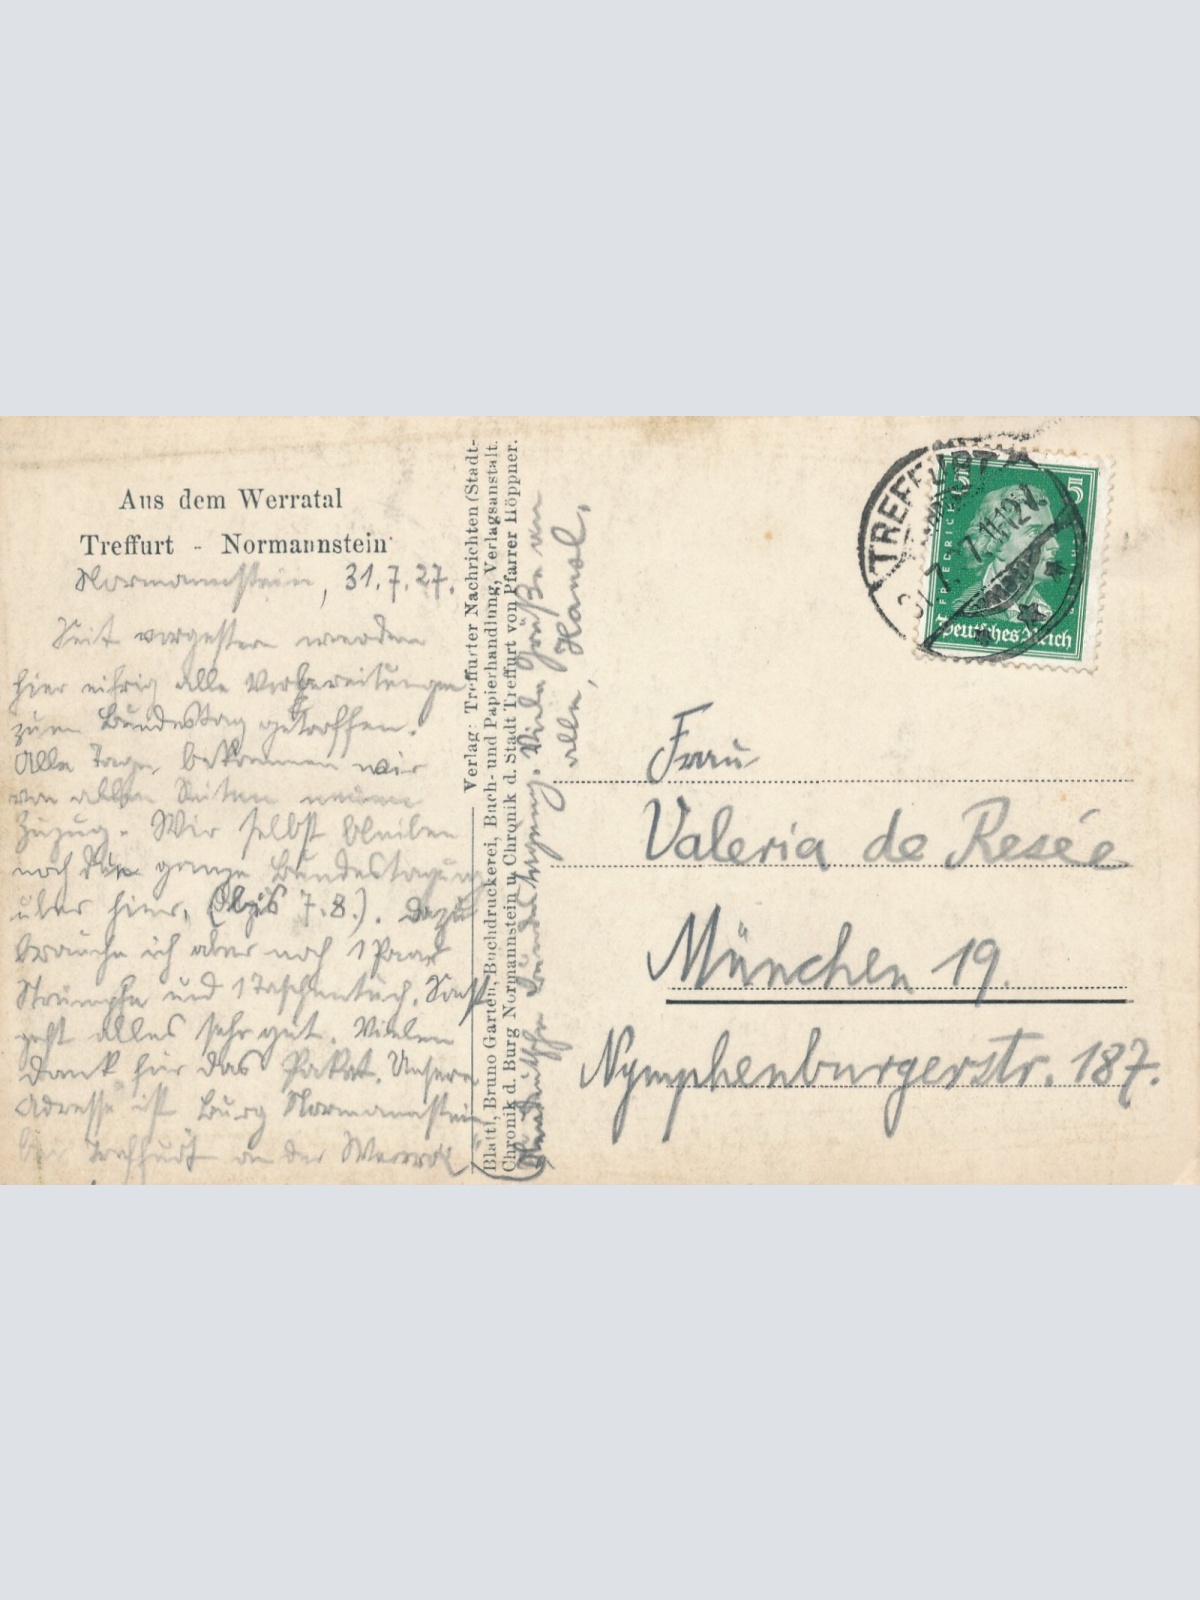 Aus dem Werratal
Treffurt - Normannstein
Normannstein, 31.7.27.
Seit vorgestern werden
hier eifrig alle Vorbereitungen
zum Bundestag getroffen.
Alle Tage bekommen wir
von allen Seiten neuen
Zuzug. Wir selbst bleiben
noch die ganze Bundestagung
über hier, (bis 7.8.). Dazu
brauche ich aber noch 1 Paar
Strümpfe und 1 Taschentuch. Sonst
geht alles sehr gut. Vielen
Dank für das Paket. Unsere
Adresse ist Burg Normannstein
bei Treffurt an der Werra
Bundestagung. Viele Grüße an
alle, Hansl.
Verlag: Treffurter Nachrichten (Stadt-
Blatt), Bruno Garten, Buchdruckerei, Buch- und Papierhandlung, Verlagsanstalt.
Chronik d. Burg Normannstein u. Chronik d. Stadt Treffurt von Pfarrer Höppner.
TREFFURT
31.7. 11-12V.
5
FRIEDRICH
Deutsches Reich
Frau
Valeria de Resée
München 19.
Nymphenburgerstr. 187.